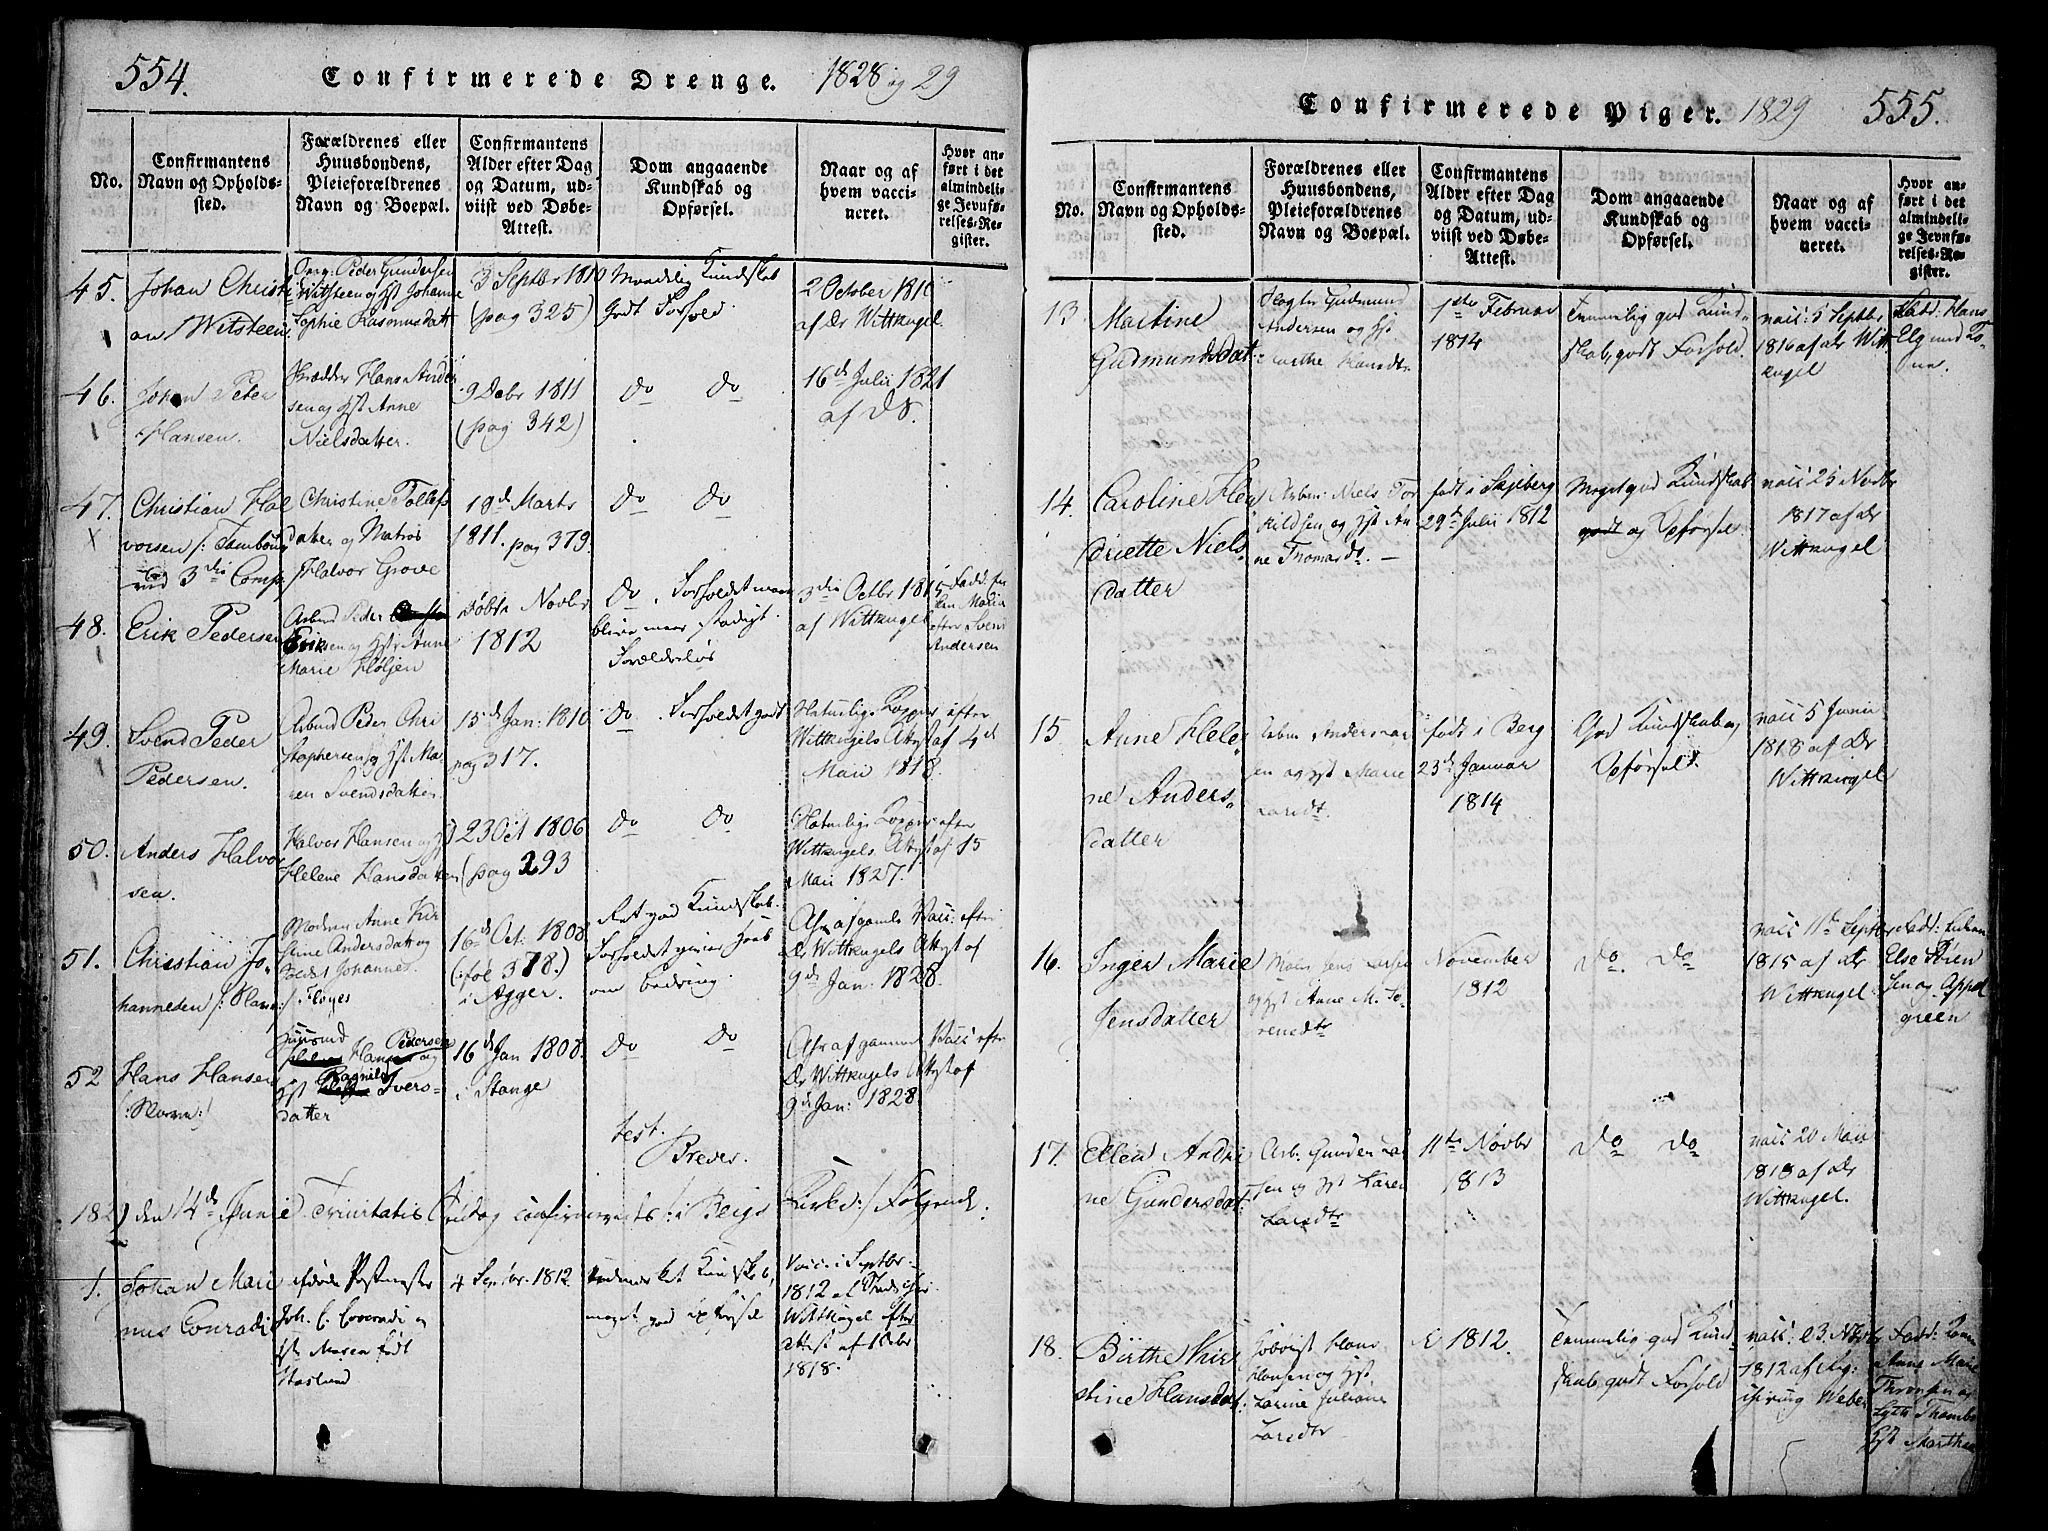 554.
Confirmerede Drenge. 1828 og 29
No.
Confirmantens
Navn og Opholds-
sted.
Forældrenes eller
Huusbondens,
Pleieforældrenes
Navn og Boepæl.
Confirmantens
Alder efter Dag
og Datum, ud-
viist ved Døbe-
Attest.
Dom angaaende
Kundskab og
Opførsel.
Naar og af
hvem vacci-
neret.
Hvor an-
ført i det
almindeli-
ge Jevnfø-
relses-Re-
gister.
45.
Johan Christi
an Witsteen
Peder Gundersen
Witsteen og Hst Johanne
Sophie Rasmusdatt
3 Septbr 1810
(pag 325)
Maadelig Kundskab
godt Forhold
2 October 1810
af Dr Wittkugel
46.
Johan Peter
Hansen.
Skrædder Hans Ander
sen og Hst Anne
Nielsdatter.
9 Decbr 1811
(pag 342)
Do Do
16d Julii 1821
af DS.
47.
X
Christian Hal
vorsen /: Tambour
ved 3die Comp:
Christine Tollefs
datter og Matros
Halvor Grove
19d Marts
1811. pag 379.
Do Do
48.
Erik Pedersen
Arbmd Peder
Eriksen og Hst Anne
Marie Kløljen
Døbt Novbr
1812
Do. Forholdet maa
blive mere stadigt.
Forældreløs
3die Octbr 1815
af Wittkugel
Marie
efter Svend
Andersen
49.
Svend Peder
Pedersen.
Arbmd Peder Chri
stophersen og Hst Ma
ren Svendsdatter
15d Jan: 1810
pag 317.
Do. Forholdet godt
Naturlige Kopper efter
Wittkugels Attest af 4d
Maii 1818.
50.
Anders Halvor
sen.
Halvor Hansen og H
Helene Hansdatter
23 Oct 1806
(pag 293
Do Do
Naturlige Kopper efter
Wittkugels Attest af 15
Maii 1827.
51.
Christian Jo
hannesen /: Slave :/
Moderen Anne Kir
stine Andersdatt og
Johannes
Fløyes
16d Oct. 1808
(: foe 378.)
i Agger.
Ret god Kundskab.
Forholdet giver Haab
om bedring
Ar af gamle Vacc: efter
Dr Wittkugels Attest af
9d Jan: 1828.
52
Hans Hansen
/: Slave :/
Huusmd Pedersen
Hans og
Hst Ragnild Ivers-
datter
16d Jan 1808.
i Stange
Do Do
Ar af gamle Vacc: efter
Dr Wittkugels Attest af
9d Jan: 1828
test.
Brever.
1829 den 14d Junii Trinitatis Søndag confirmeredes /: i Bergs Kirke :/ Følgende:
1.
Johan Mari
nus Conradi
afdøde Postmester
Joh. C. Conradi og
Hst Maren født
Haslund
4 Septbr. 1812
Udmærket Kundskab,
meget god Opførsel
Vacc. i Septbr.
1812 af
Wittkugel efter
attest af 1 Octbr
1818.
Confirmerede Piger. 1829 555.
No.
Confirmantens
Navn og Opholds-
sted.
Forældrenes eller
Huusbondens,
Pleieforældrenes
Navn og Boepæl.
Confirmantens
Alder efter Dag
og Datum, ud-
viist ved Døbe-
Attest.
Dom angaaende
Kundskab og
Opførsel.
Naar og af
hvem vacci-
neret.
Hvor an-
ført i det
almindeli-
ge Jevnfø-
relses-Re-
gister.
13.
Martine
Gudmundsdat:
Gudmund
Andersen og Hst
Marthe Hansdtr.
1ste Februar
1814
Temmelig god Kund-
skab, godt Forhold.
vacc: 5 Septbr
1816 af Dr Witt
kugel
Fad: Hans
Elg
14.
Caroline Hen
driette Niels
datter
Arbm: Niels Tor
kildsen og Hst An
ne Thomasdt. —
født i Skjeberg
29d Julii 1812
Meget god Kundskab
godt og Opførsel
vacc 25 Novbr
1817 af Dr
Wittkugel
15
Anne Hele
ne Anders
datter
Arbm Anders
sen og Hst Marie
Larsdt.
født i Berg
23d Januar
1814
God Kundskab og
Opførsel.
vacc 5 Junii
1818 af Dr
Wittkugel
16.
Inger Marie
Jensdatter
Jens Larsen
og Hst Anne M. So
rensdtr
November
1812
Do. Do
vacc 11te Septbr
1815 af Dr
Wittkugel
Fadd:
Else Søren
sen og Appel
green
17.
Ellen Andri
ne Gundersdat:
Arb: Gunder Lar
sen og Hst Karen
Larsdtr
11te Novbr
1813
Do Do
vacc 20 Maii
1818 af Dr
Wittkugel.
18.
Birthe Kir
stine Hansdat:
Hans
Hansen og Hst,
Karine Juliane
Larsdtr
1812.
Temmelig god Kund
skab, godt Forhold
vacc: 23. Novbr
1812 af Reg:
chirurg Weber
Fadd:
Anne Marie
Thronsen og
Hst Marthe